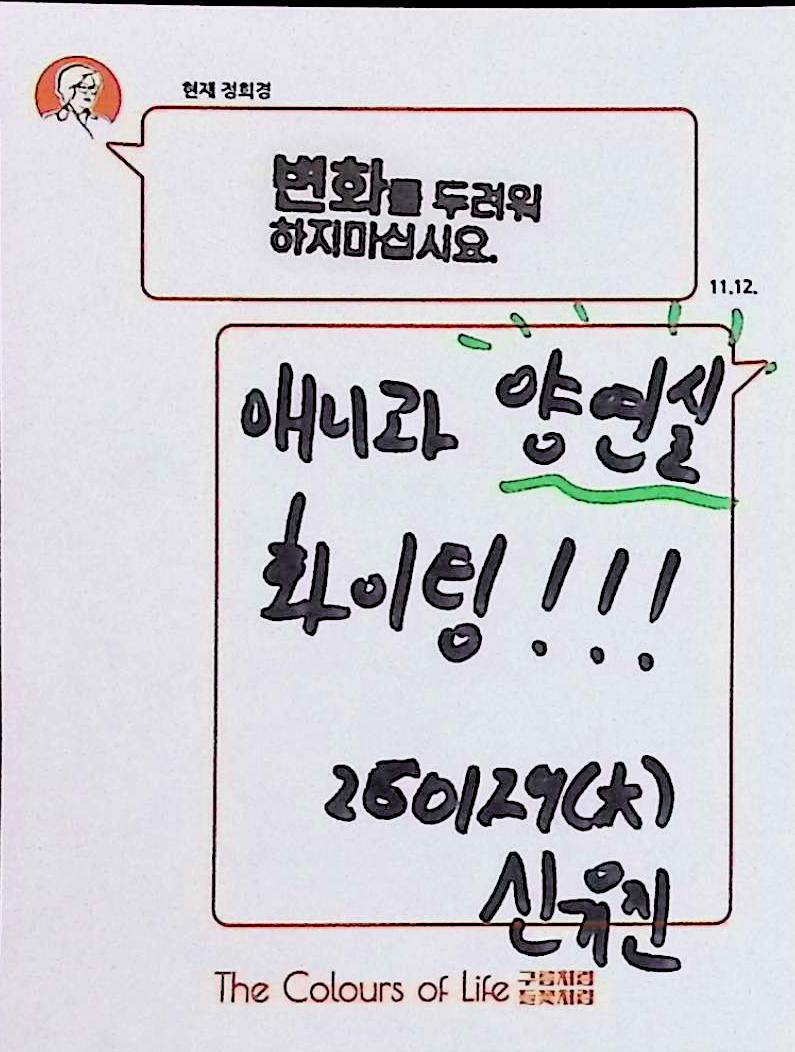 현재 정희경
변화를 두려워
하지마십시요.
11.12.
애니라 양연실
화이팅!!!
250129(水)
신유진
The Colours of Life 구름처럼
들꽃처럼